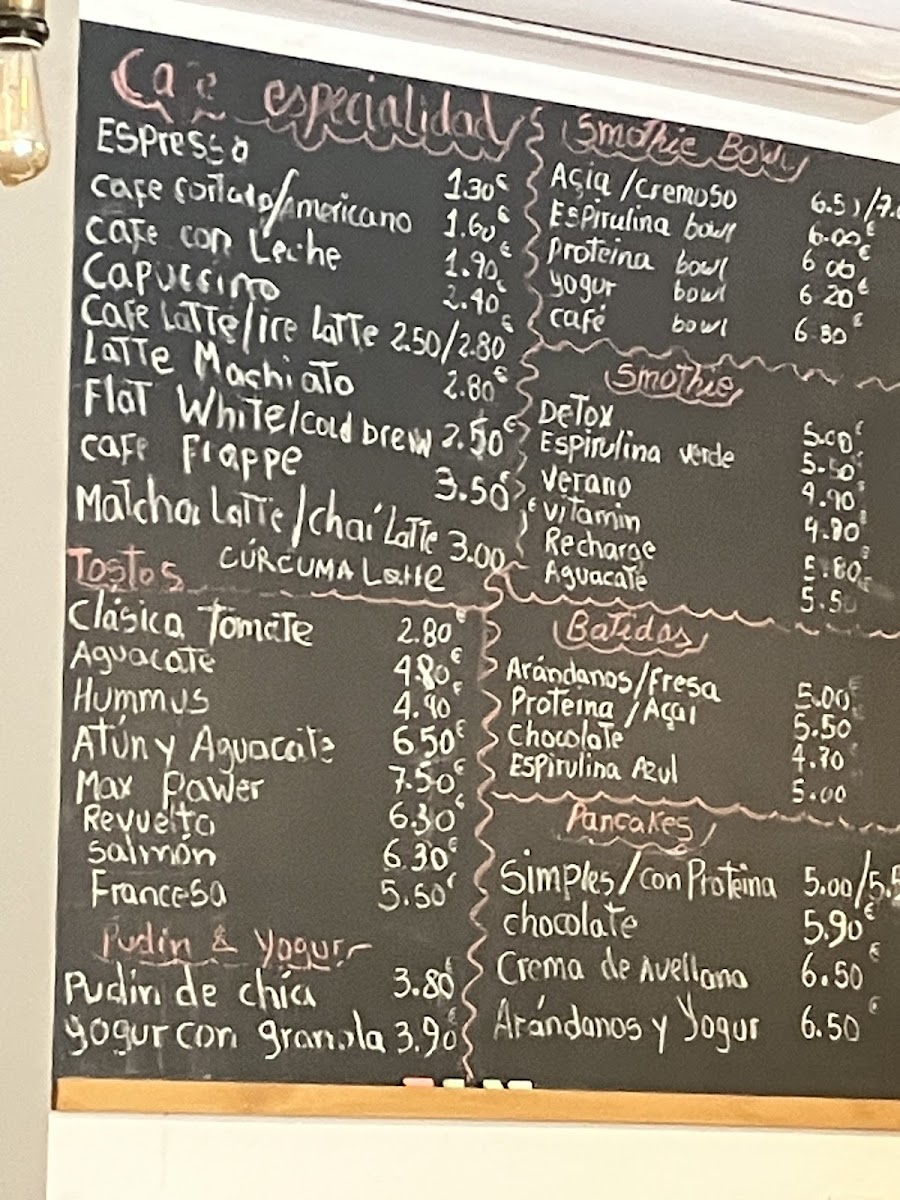 Café especialidad
Espresso 1.30€
cafe cortado/Americano 1.60€
Cafe con Leche 1.90€
Capuccino 2.40€
Cafe Latte/ice Latte 2.50/2.80€
Latte Machiato 2.80€
Flat White/cold brew 2.50€
cafe Frappe 3.50€
Matcha Latte/chaí Latte 3.00€
CÚRCUMA Latte
Tostos
Clásica Tomate 2.80€
Aguacate 4.80€
Hummus 4.90€
Atún y Aguacate 6.50€
Max Pawer 7.50€
Revuelto 6.30€
Salmón 6.30€
Francesa 5.50€
Pudin & Yogur
Pudin de chía 3.80€
Yogur con granola 3.90€
Smothie Bowl
Açia/cremoso 6.50/7.
Espirulina bowl 6.00€
Proteina bowl 6.00€
yogur bowl 6.20€
café bowl 6.80€
Smothie
Detox 5.00€
Espirulina verde 5.50€
Verano 4.90€
Vitamin 4.80€
Recharge 5.80€
Aguacate 5.50
Batidos
Arándanos/Fresa 5.00€
Proteina/Açai 5.50
Chocolate 4.70
Espirulina Azul 5.00
Pancakes
Simples/con Proteina 5.00/5.5
chocolate 5.90€
Crema de Avellana 6.50€
Arándanos y Yogur 6.50€